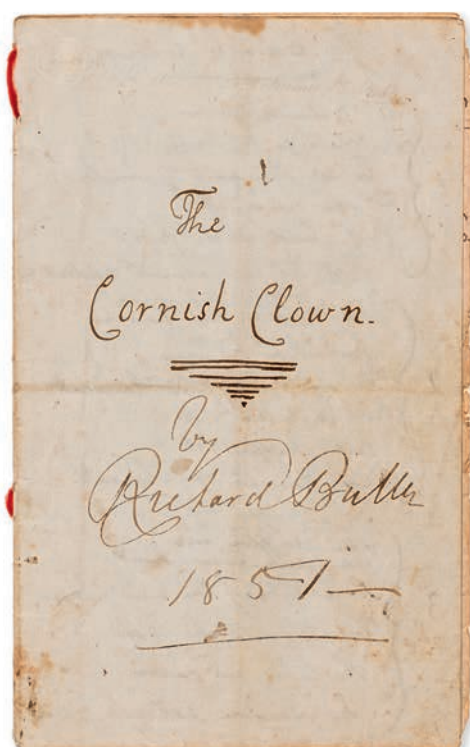 The
Cornish Clown.
by
Richard Buller
1857 —